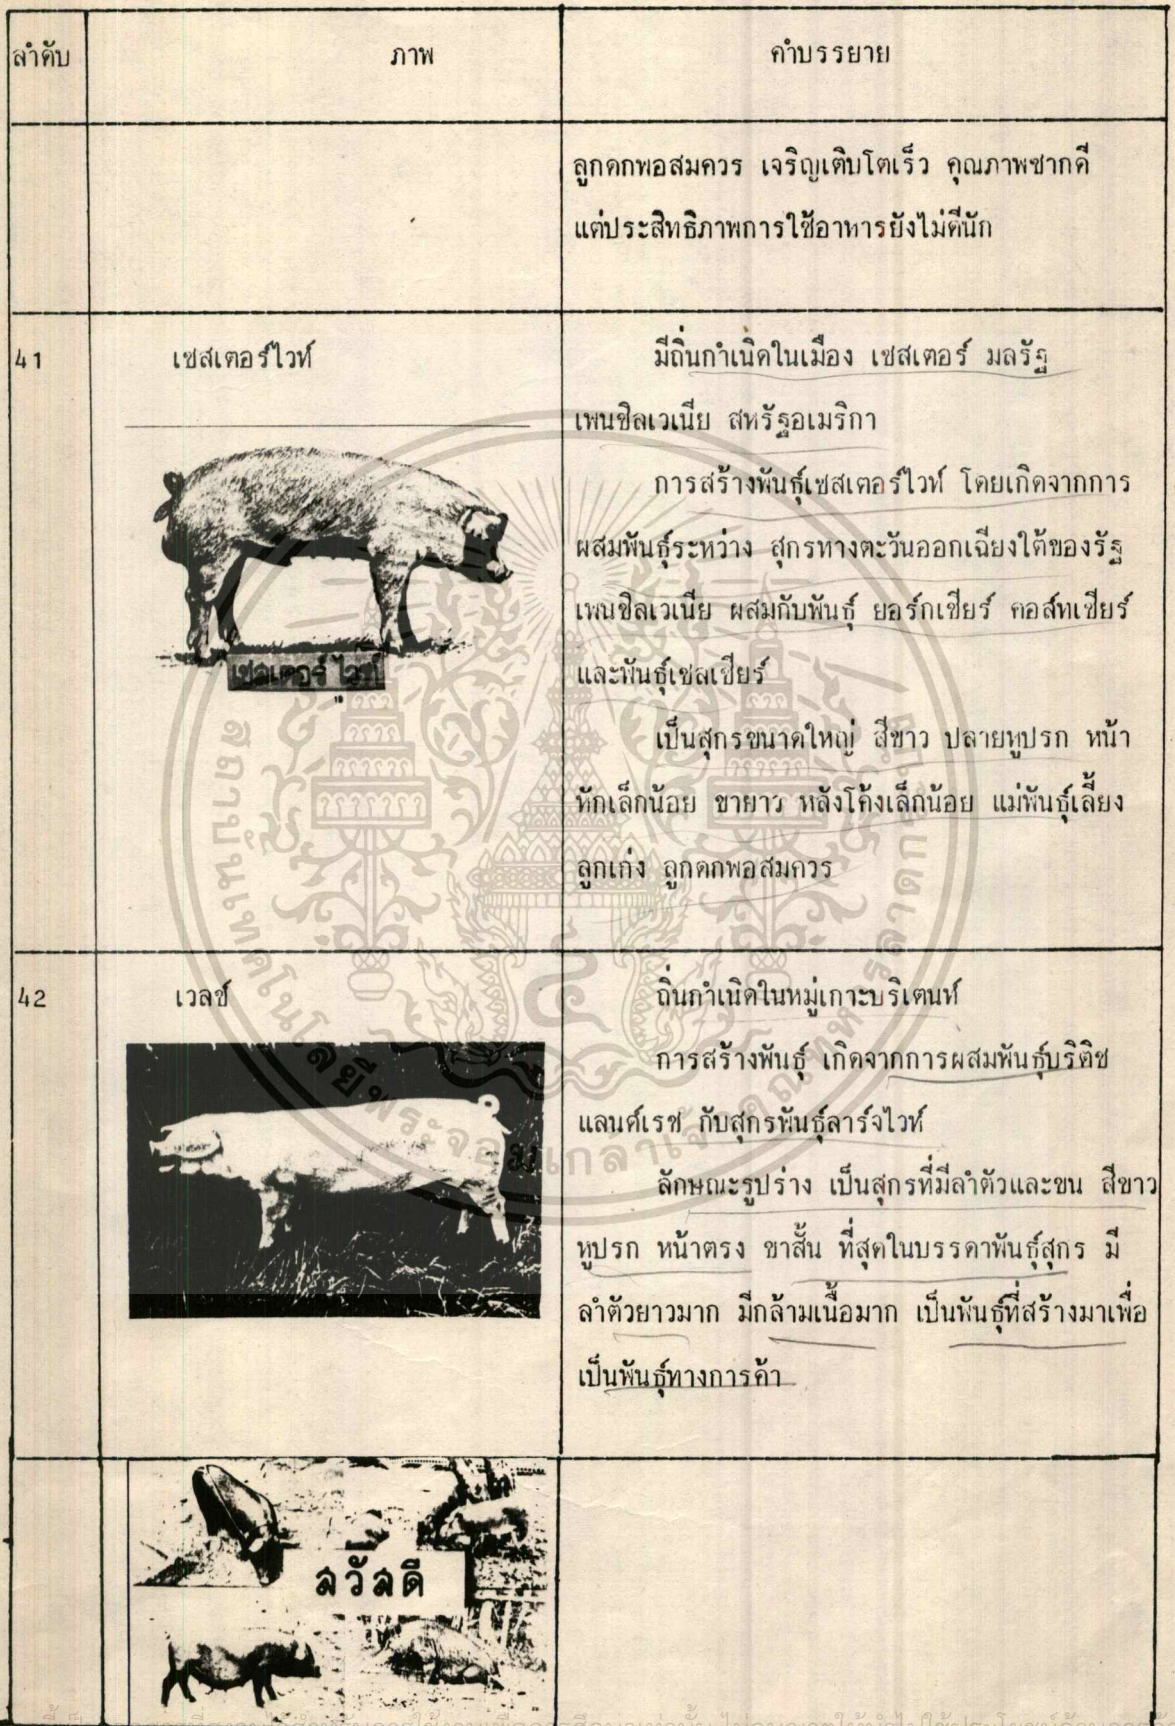 ลำดับ
ภาพ
คำบรรยาย
ลูกดกพอสมควร เจริญเติบโตเร็ว คุณภาพซากดี
แต่ประสิทธิภาพการใช้อาหารยังไม่ดีนัก
41
เชสเตอร์ไวท์
เชสเตอร์ไวท์
มีถิ่นกำเนิดในเมือง เชสเตอร์ มลรัฐ
เพนซิลเวเนีย สหรัฐอเมริกา
การสร้างพันธุ์เชสเตอร์ไวท์ โดยเกิดจากการ
ผสมพันธุ์ระหว่าง สุกรทางตะวันออกเฉียงใต้ของรัฐ
เพนซิลเวเนีย ผสมกับพันธุ์ ยอร์กเชียร์ คอลัทเชียร์
และพันธุ์เชลเชียร์
เป็นสุกรขนาดใหญ่ สีขาว ปลายหูปรก หน้า
หักเล็กน้อย ขายาว หลังโค้งเล็กน้อย แม่พันธุ์เลี้ยง
ลูกเก่ง ลูกดกพอสมควร
42
เวลช์
ถิ่นกำเนิดในหมู่เกาะบริเตนท์
การสร้างพันธุ์ เกิดจากการผสมพันธุ์บริติช
แลนด์เรซ กับสุกรพันธุ์ลาร์จไวท์
ลักษณะรูปร่าง เป็นสุกรที่มีลำตัวและขน สีขาว
หูปรก หน้าตรง ขาสั้น ที่สุดในบรรดาพันธุ์สุกร มี
ลำตัวยาวมาก มีกล้ามเนื้อมาก เป็นพันธุ์ที่สร้างมาเพื่อ
เป็นพันธุ์ทางการค้า
สวัสดี
สถาบันเทคโนโลยีพระจอมเกล้าเจ้าคุณทหารลาดกระบัง